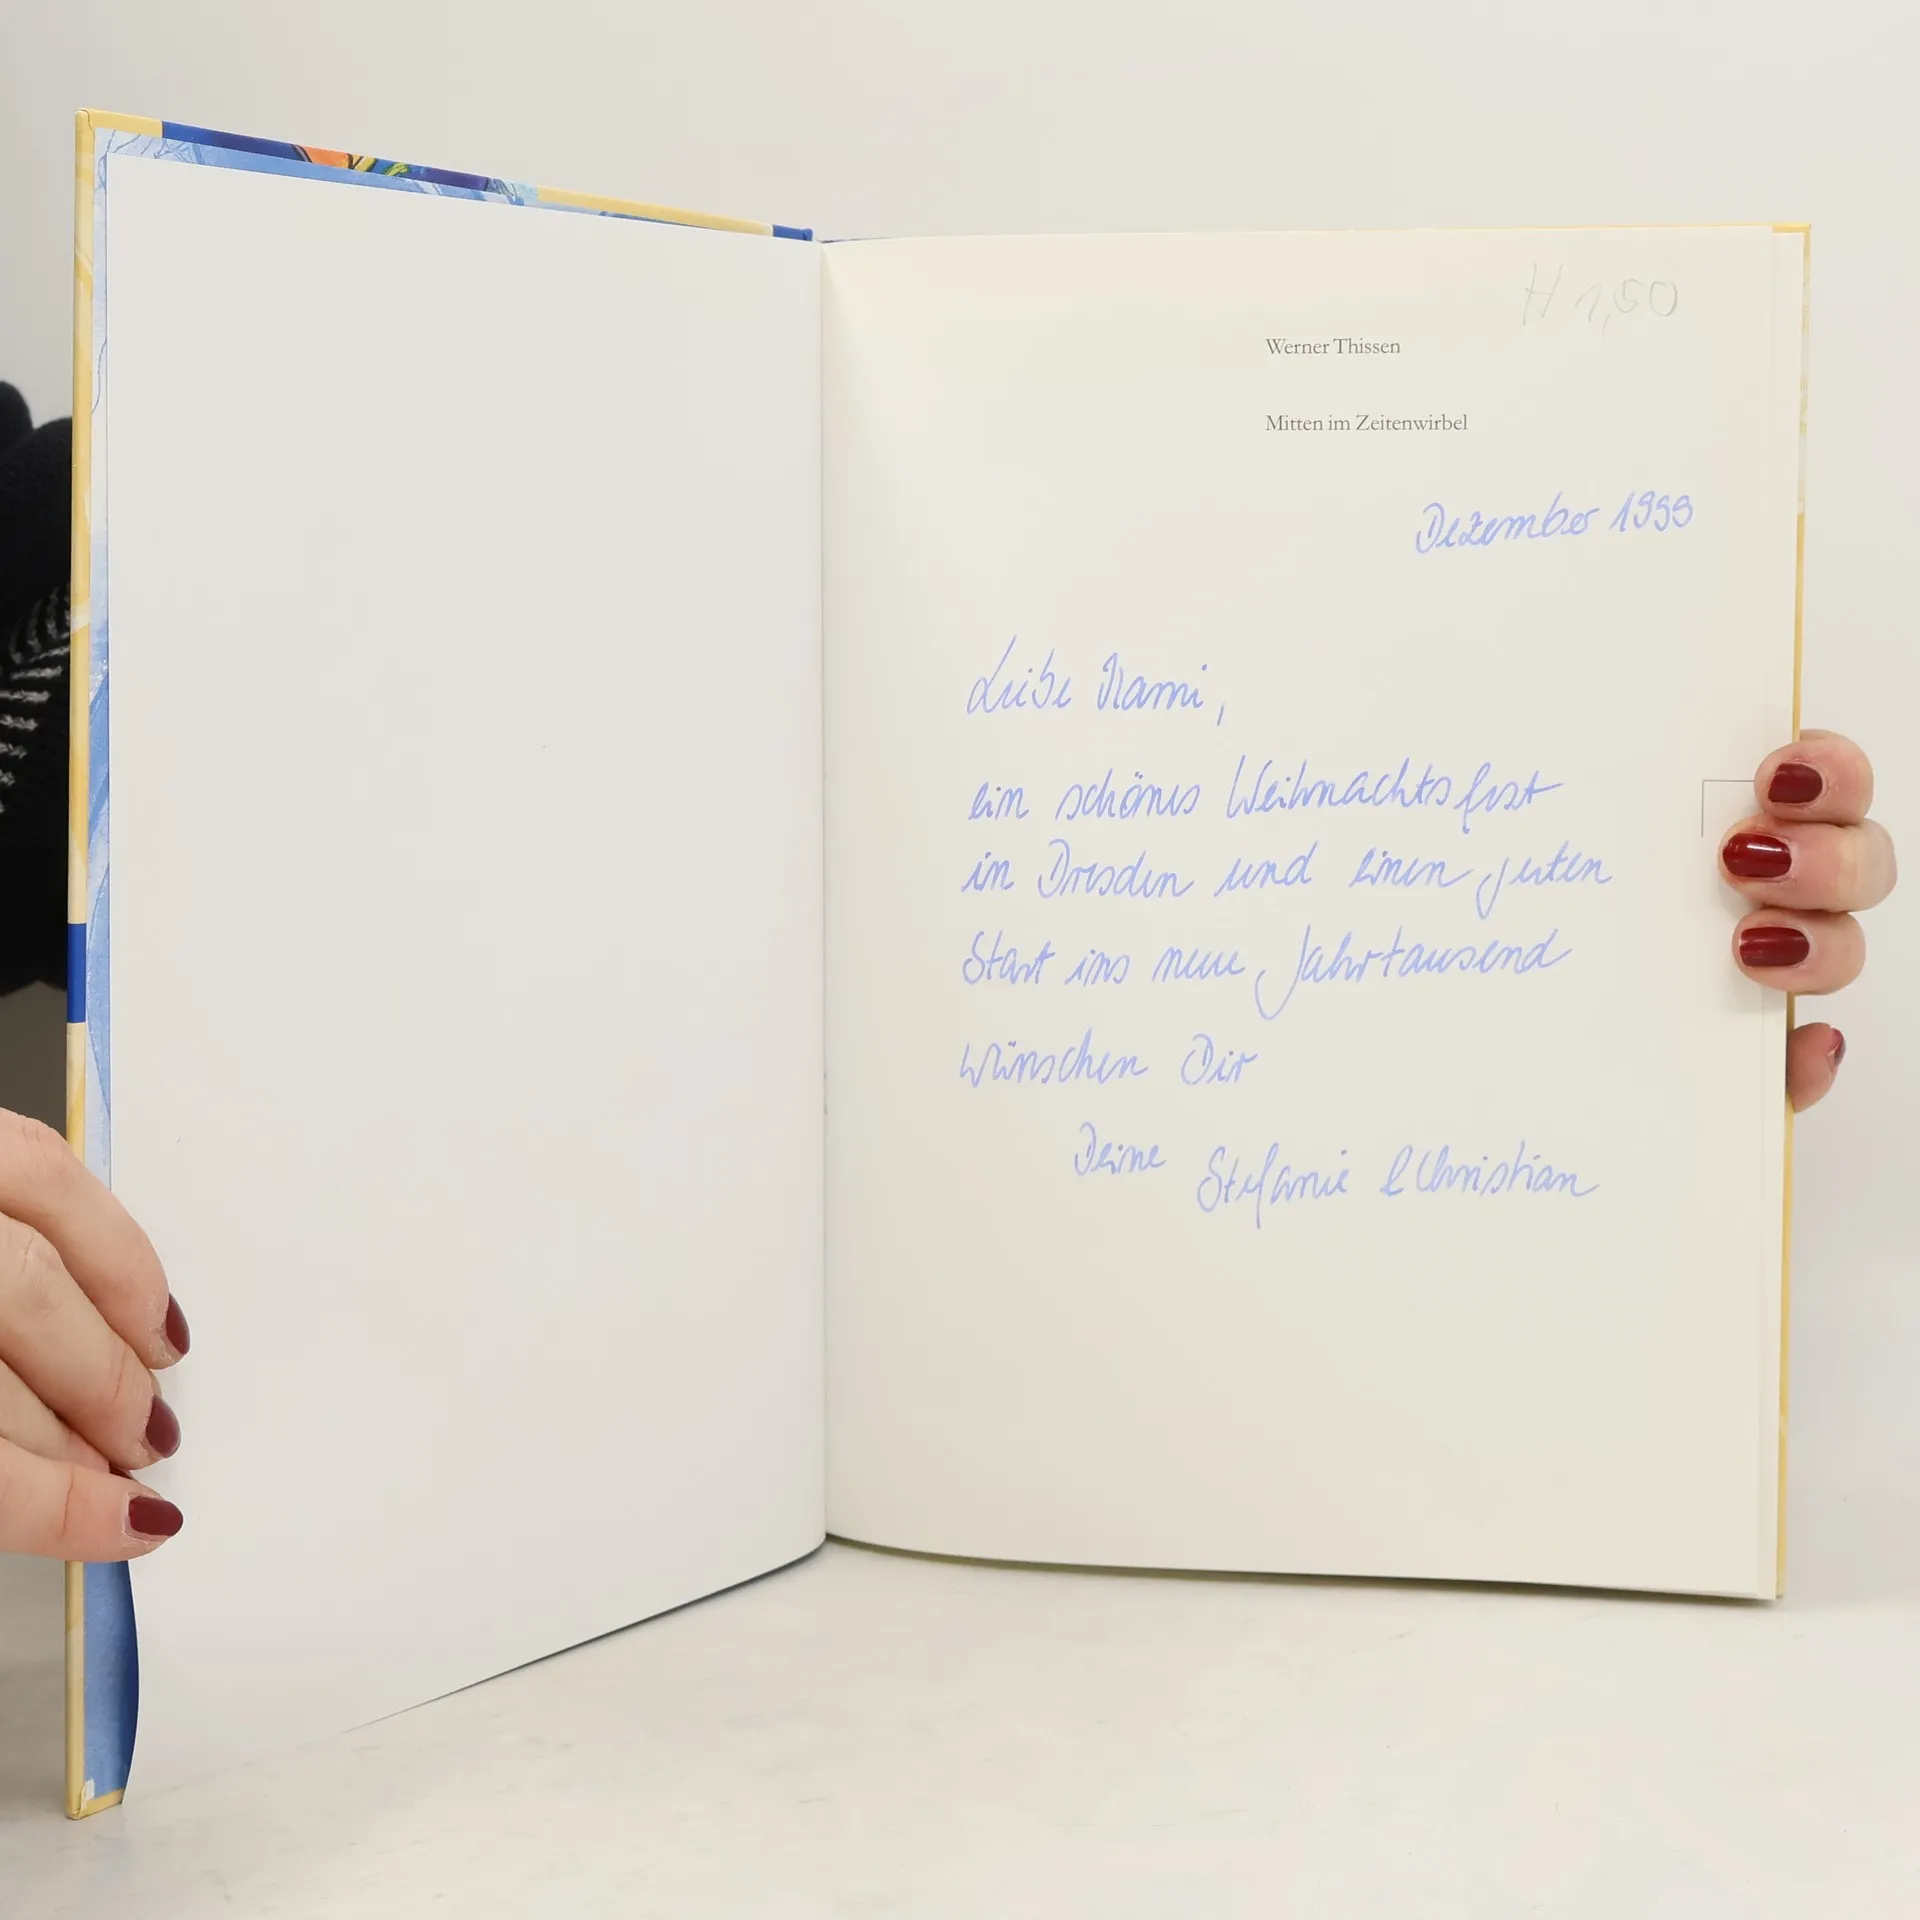 H 1,50
Werner Thissen
Mitten im Zeitenwirbel
Dezember 1999
Liebe Mami,
ein schönes Weihnachtsfest
in Dresden und einen guten
Start ins neue Jahrtausend
wünschen Dir
Deine Stefanie & Christian